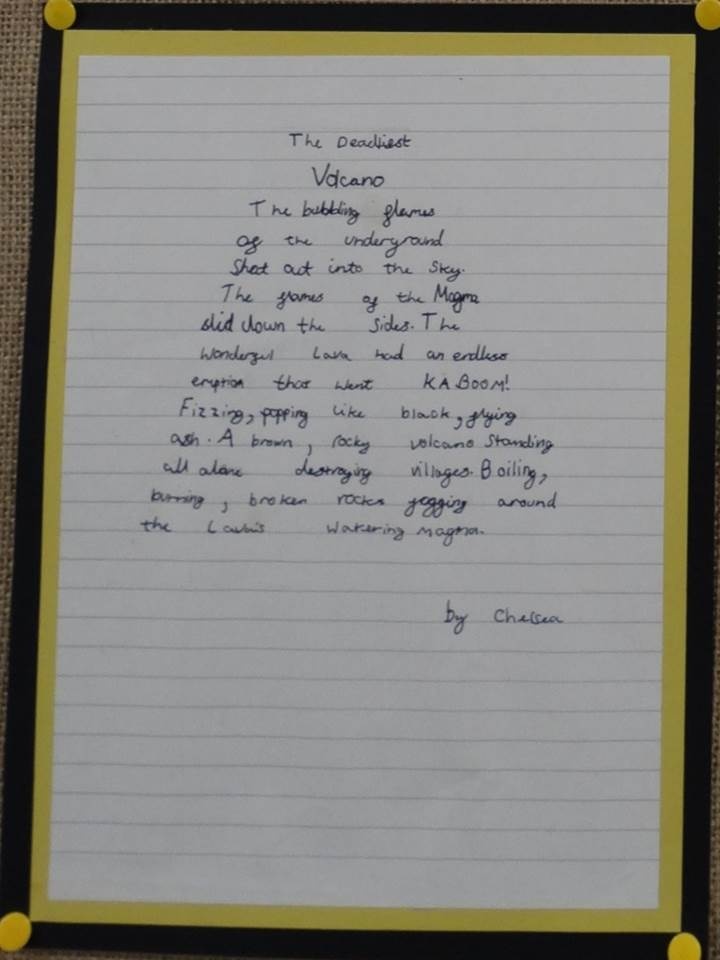 The Deadliest
Volcano
The bubbling flames
of the underground
Shot out into the Sky.
The flames of the Magma
slid down the sides. The
Wonderful Lava had an endless
eruption that went KABOOM!
Fizzing, popping like black, flying
ash. A brown, rocky volcano Standing
all alone destroying villages. Boiling,
burning, broken rocks jogging around
the magma.
by Chelsea